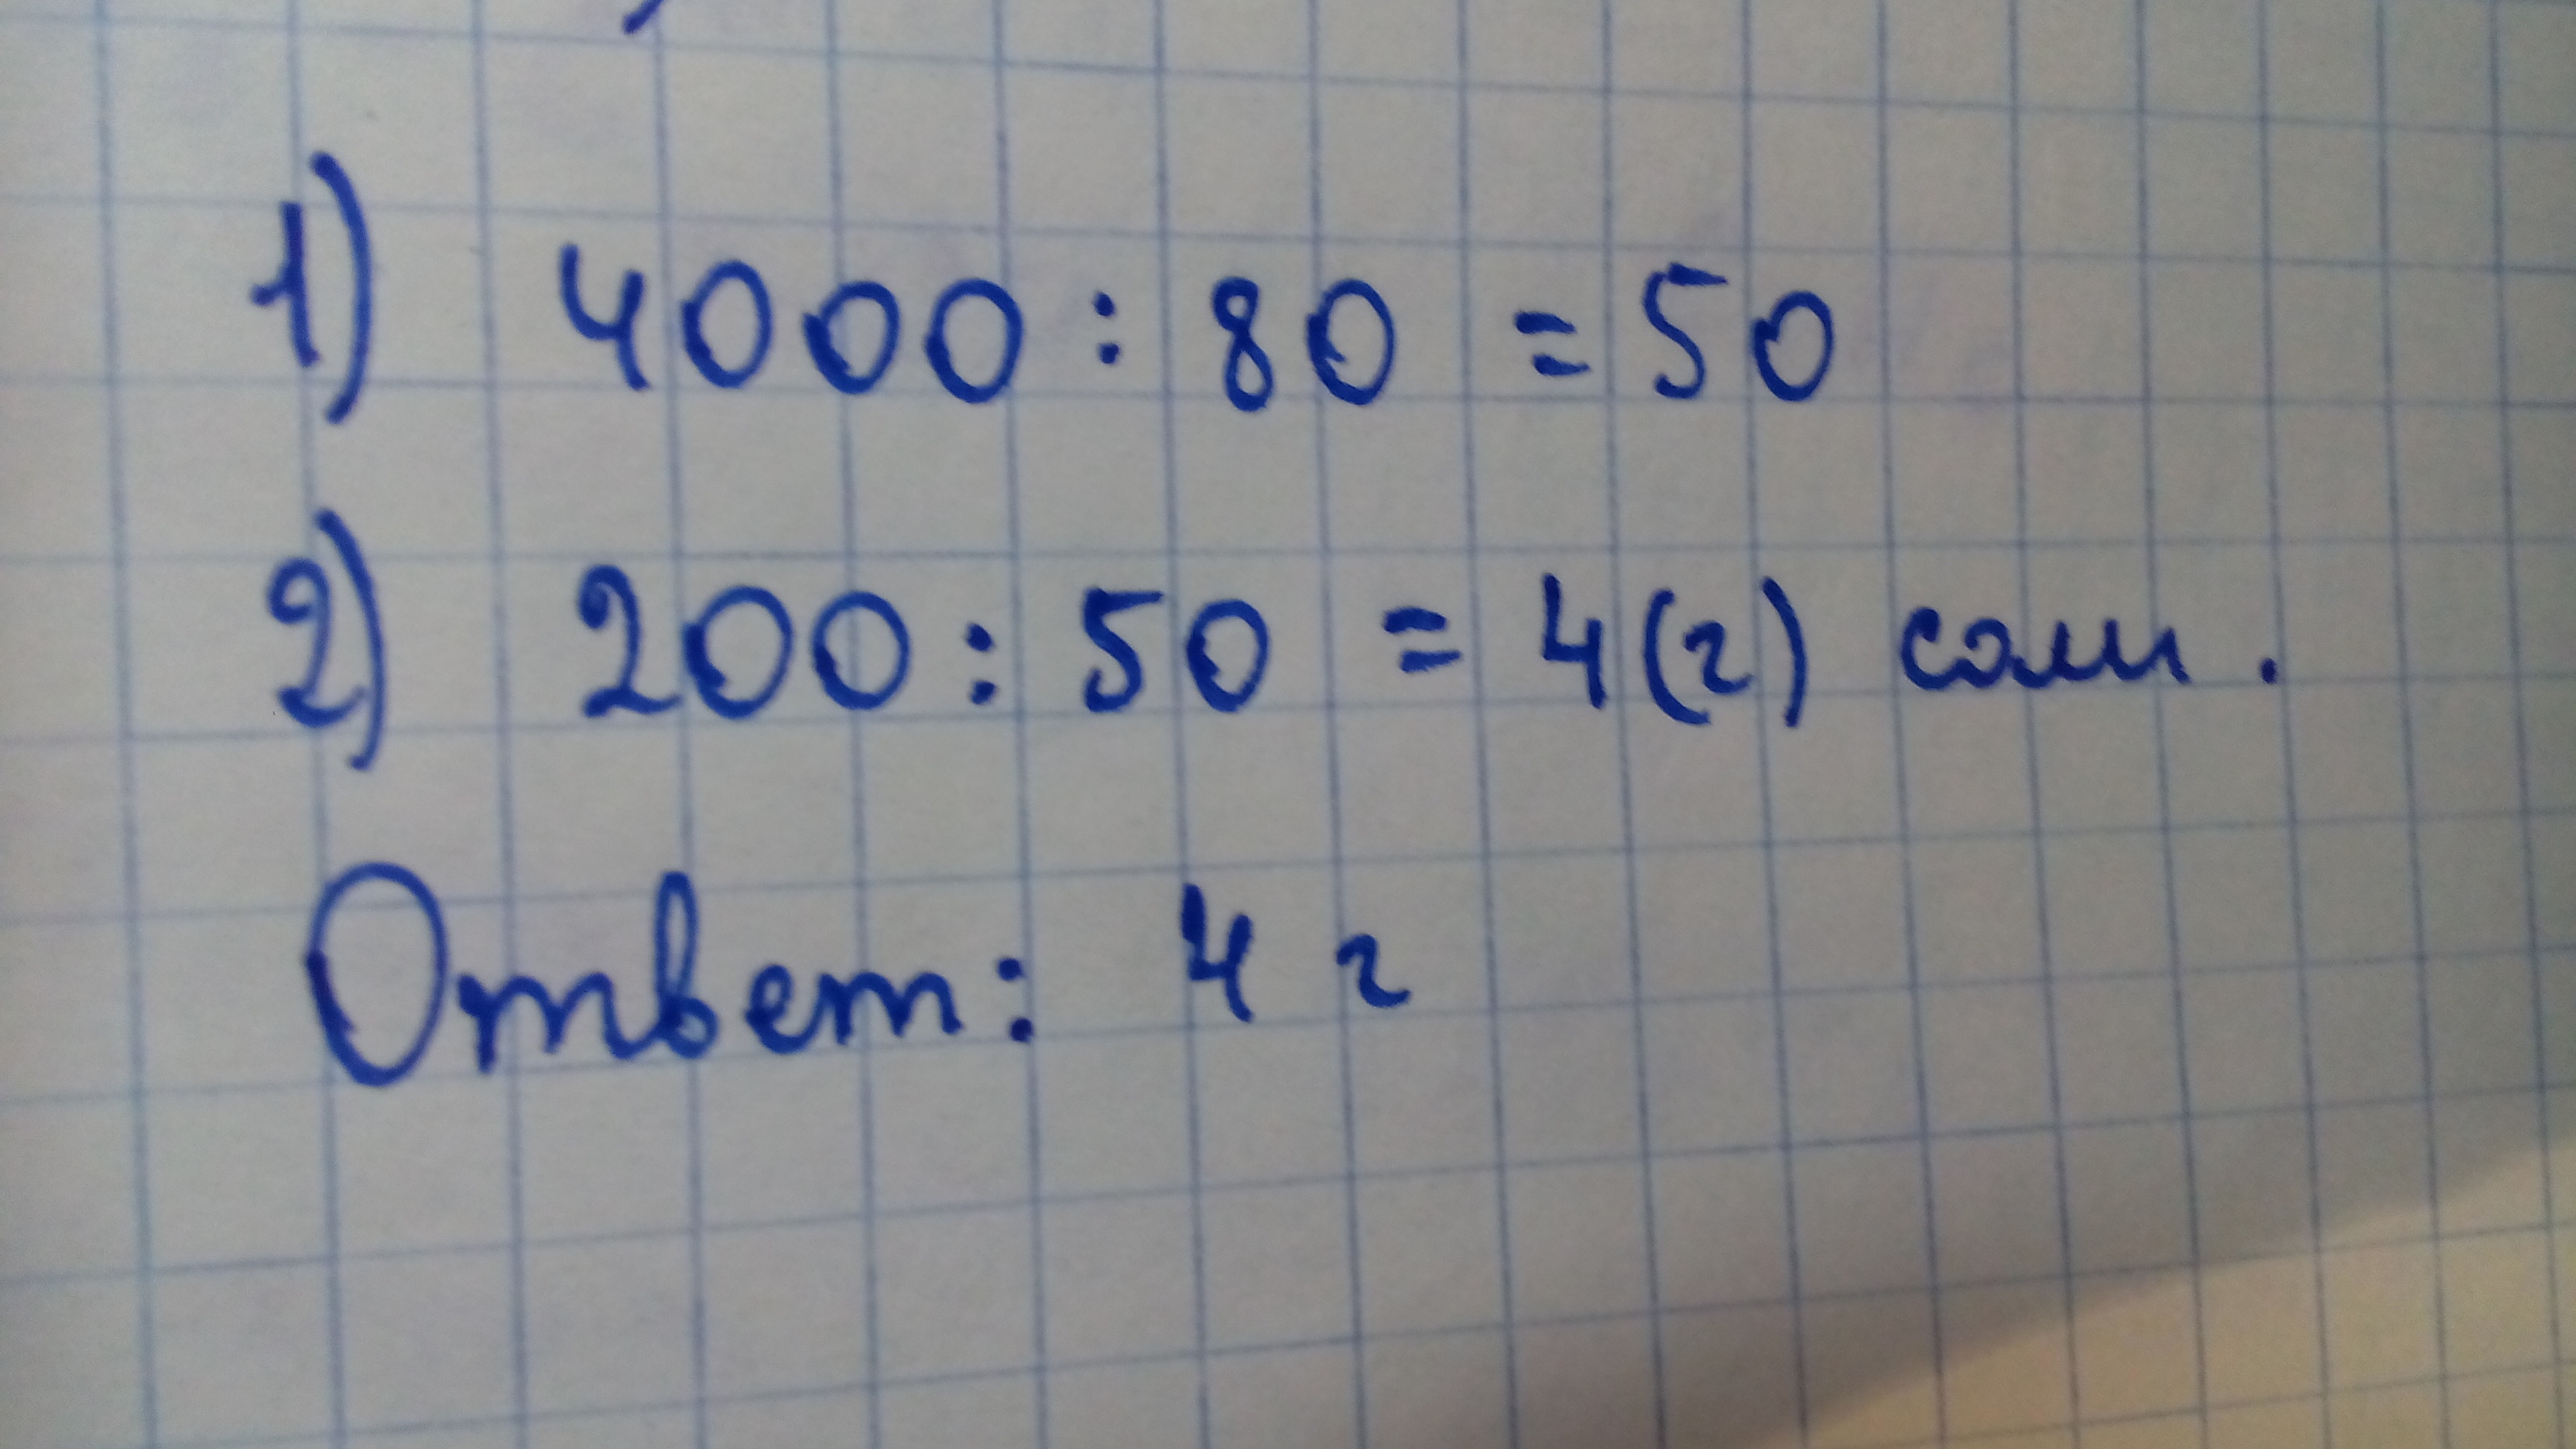 1) 4000 : 80 = 50
2) 200 : 50 = 4 (г) соли .
Ответ: 4 г